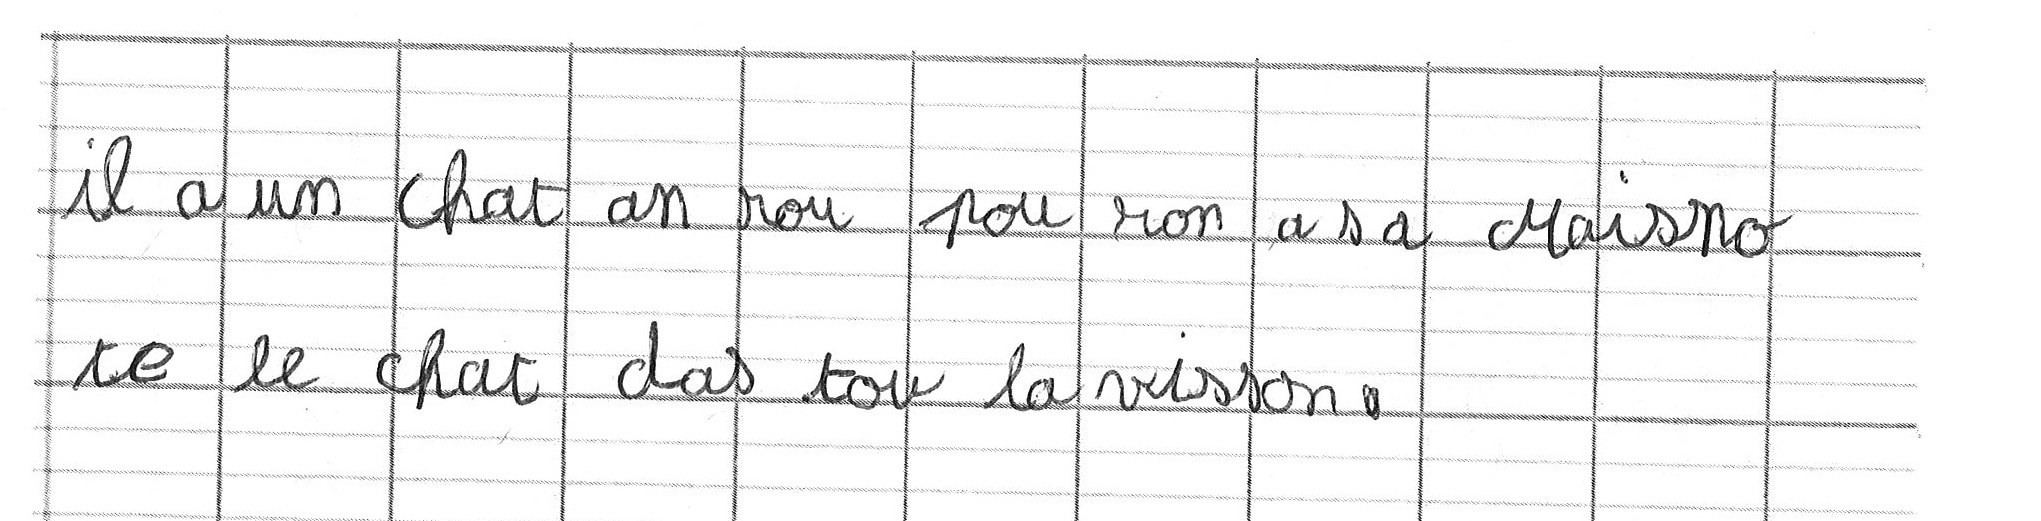 il a un chat an rou pou ron a sa Maisno
te le chat das tou la vissson.